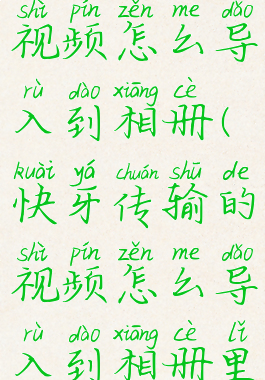 shì pín zěn me dǎo
视频怎么导
rù dào xiāng cè
入到相册(
kuài yá chuán shū de
快牙传输的
shì pín zěn me dǎo
视频怎么导
rù dào xiāng cè lǐ
入到相册里